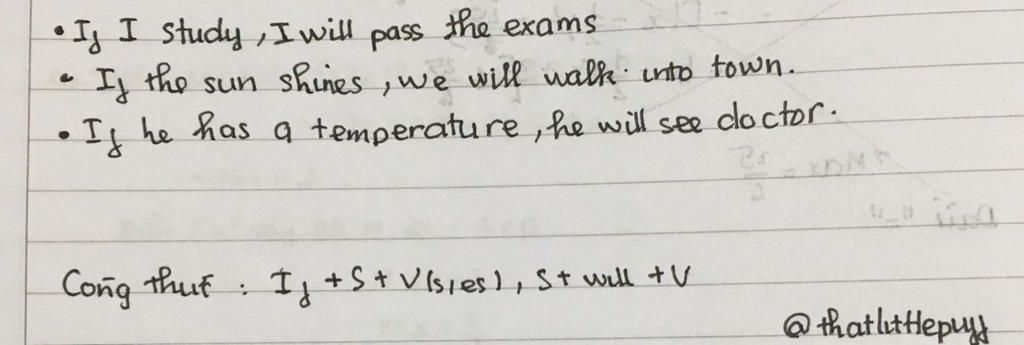 • If I study, I will pass the exams
• If the sun shines, we will walk into town.
• If he has a temperature, he will see doctor.
Max = 25/6
Dấu "="
Công thức : If + S + V(s,es), S + will + V
@thatlittlepuff